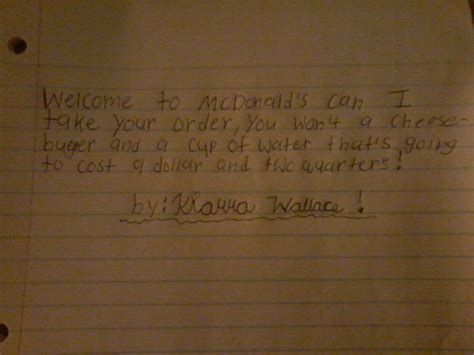 Welcome to McDonald's can I
take your order, You won't a cheese-
buger and a cup of water that's going
to cost a dollar and two quarters!
by: Kiarra Wallace!